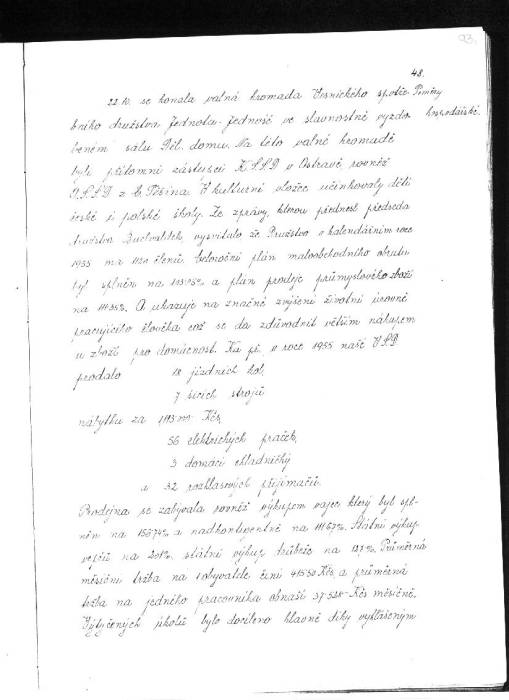 93.
48.
22.10. se konala valná hromada Vesnického spotře-
Poměry
bního družstva Jednota-Jedność ve slavnostně vyzdo-
hospodářské.
beném sálu Děl. domu. Na této valné hromadě
byli přítomni zástupci K.S.S.D. v Ostravě, rovněž
O.S.S.D. z Č. Těšína. V kulturní vložce účinkovaly děti
české i polské školy. Ze zprávy, kterou přednesl předseda
družstva, vysvítalo že Družstvo v kalendářním roce
1955 má členů. Celoroční plán maloobchodního obratu
byl splněn na a plán prodeje průmyslového zboží
na A ukazuje na značné zvýšení životní úrovně
pracujícího člověka což se dá zdůvodnit větším nákupem
u zboží pro domácnost. Na př. v roce 1955 naše V.S.D.
prodalo
jízdních kol,
7 šicích strojů
nábytku za Kčs,
56 elektrických praček,
3 domácí chladničky
a 32 rozhlasových přijímačů.
Prodejna se zabývala rovněž výkupem vajec který byl spl-
něn na a nadkontingentně na Státní výkup
vepřů na 201%. státní výkup drůbeže na 127%. Průměrná
měsíční tržba na 1 obyvatele činí Kčs a průměrná
tržba na jednoho pracovníka obnáší Kčs měsíčně.
Vytyčených úkolů bylo docíleno hlavně díky